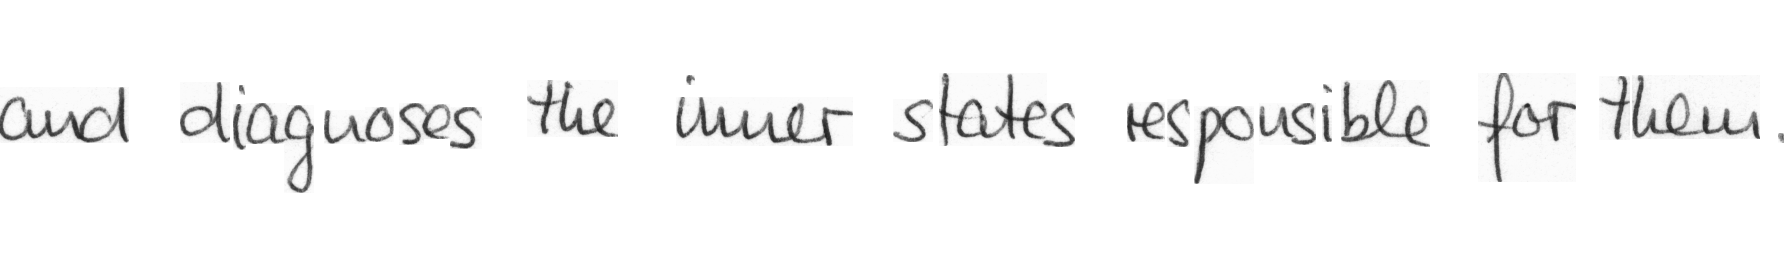 and diagnoses the inner states responsible for them.